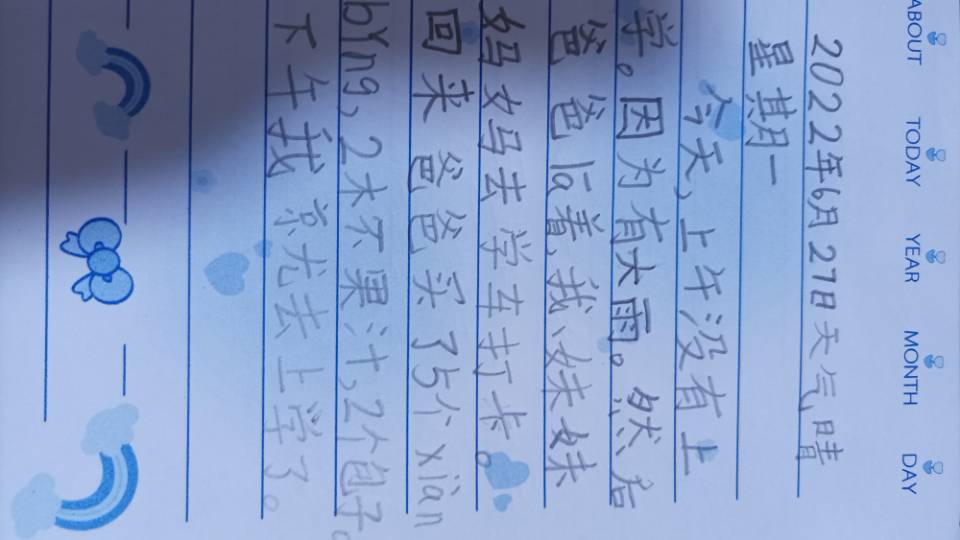 ABOUT TODAY YEAR MONTH DAY
2022年6月27日天气晴
星期一
今天,上午没有上
学。因为有大雨。然后
爸爸la着,我、妹妹
妈妈去学车打卡。
回来爸爸买了5个xian
bYng,2杯果汁,2个包子。
下午我就去上学了。